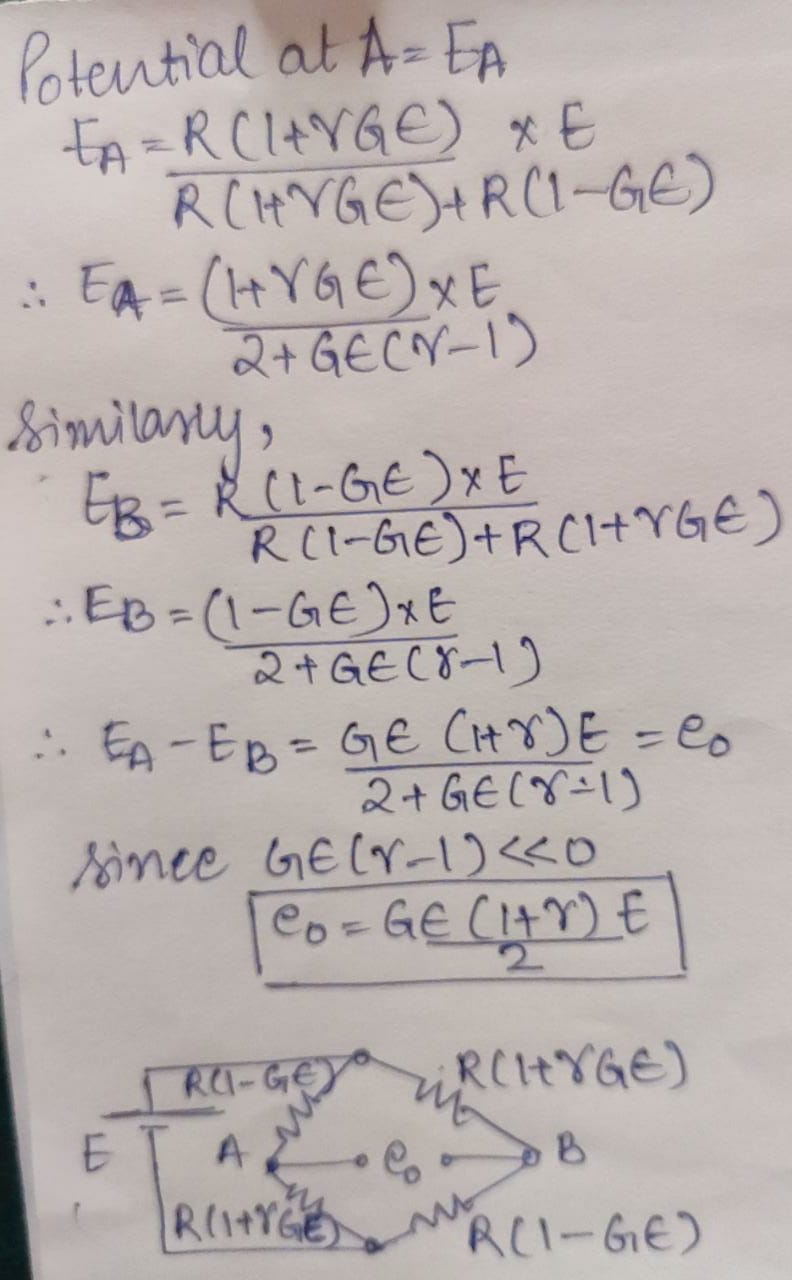 Potential at A = EA
EA = R(1+γGϵ) × E
R(1+γGϵ)+R(1-Gϵ)
∴ EA = (1+γGϵ)×E
2+Gϵ(γ-1)
Similarly,
EB = R(1-Gϵ)×E
R(1-Gϵ)+R(1+γGϵ)
∴ EB = (1-Gϵ)×E
2+Gϵ(γ-1)
∴ EA - EB = Gϵ (1+γ)E = e0
2+Gϵ(γ-1)
since Gϵ(γ-1) <<0
e0 = Gϵ (1+γ) E
2
R(1-Gϵ) R(1+γGϵ)
E A e0 B
R(1+γGϵ) R(1-Gϵ)